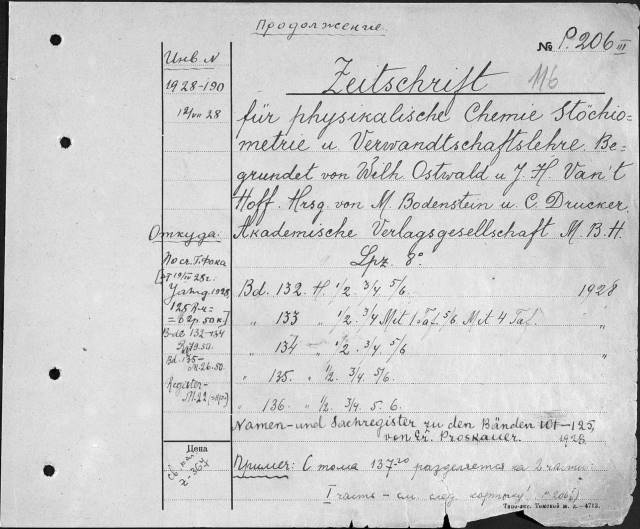 Продолжение.
№ P. 206 III
116
Инв. N
1928-190
12/VII 28
Zeitschrift
für physikalische Chemie Stöchio-
metrie u Verwandtschaftslehre. Be-
grundet von Wilh. Ostwald u J. H. Van't
Hoff. Hrsg. von M. Bodenstein u. C. Drucker.
Akademische Verlagsgesellschaft M. B. H.
Lpz. 8°
Откуда:
По сч. Г. Фока
Bd. 132. H. 1/2. 3/4 5/6. 1928
„ 133 „ 1/2. 3/4 Mit 1 Taf. 5/6 Mit 4 Taf. „
„ 134 — 1/2. 3/4 5/6 „
„ 135. „ 1/2. 3/4. 5/6.
„ 136. „ 1/2. 3/4. 5. 6.
Bde 132-134
Bd. 135-
M. 26.50.
Register-
M. 22
Namen- und Sachregister zu den Bänden 101-125,
von Er. Proskauer. 1928.
Цена
Пример: С тома 137-го разделяется на 2 части:
I часть - см. след. карточку!
Типо-лит. Томской ж. д.-4713.